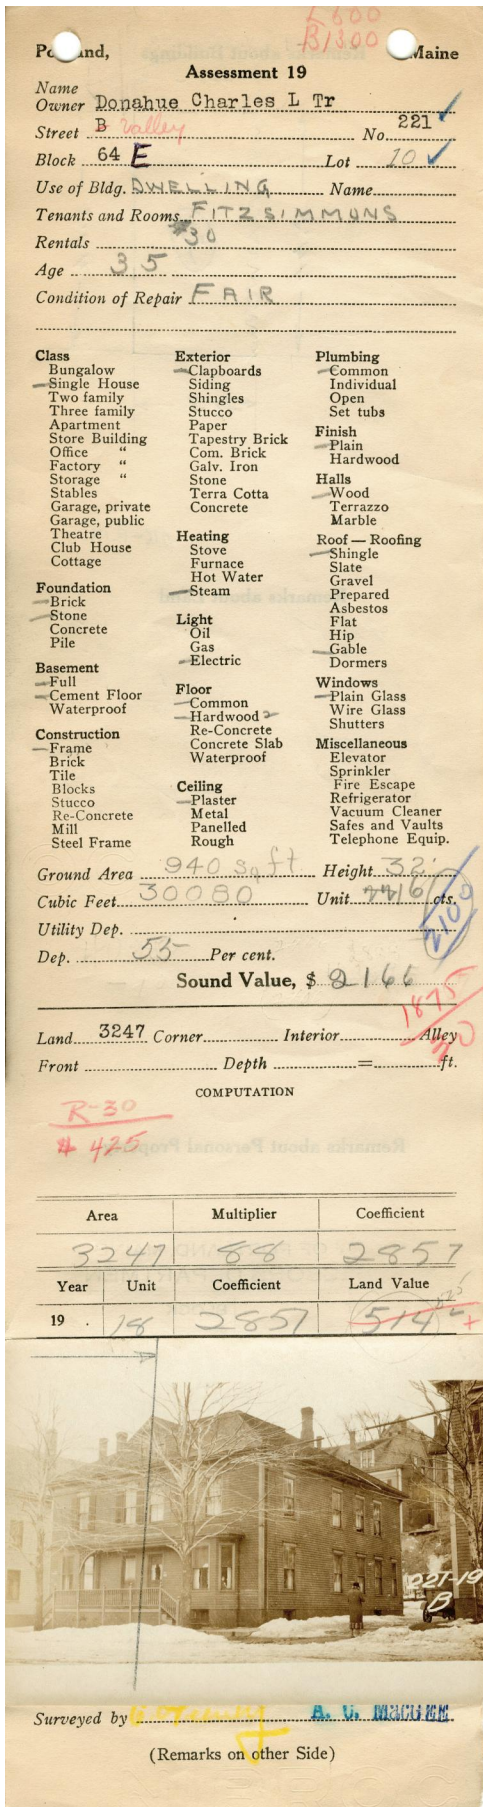 L600
B1300
Maine
Assessment 19
Name
Owner Donahue Charles L Tr
Street B Valley No 221
Block 64 E Lot 10
Use of Bldg. DWELLING Name
Tenants and Rooms FITZSIMMONS
Rentals $30
Age 35
Condition of Repair FAIR
Class
Bungalow
Single House
Two family
Three family
Apartment
Store Building
Office "
Factory "
Storage "
Stables
Garage, private
Garage, public
Theatre
Club House
Cottage
Foundation
Brick
Stone
Concrete
Pile
Basement
Full
Cement Floor
Waterproof
Construction
Frame
Brick
Tile
Blocks
Stucco
Re-Concrete
Mill
Steel Frame
Exterior
Clapboards
Siding
Shingles
Stucco
Paper
Tapestry Brick
Com. Brick
Galv. Iron
Stone
Terra Cotta
Concrete
Heating
Stove
Furnace
Hot Water
Steam
Light
Oil
Gas
Electric
Floor
Common
Hardwood 2
Re-Concrete
Concrete Slab
Waterproof
Ceiling
Plaster
Metal
Panelled
Rough
Plumbing
Common
Individual
Open
Set tubs
Finish
Plain
Hardwood
Halls
Wood
Terrazzo
Marble
Roof — Roofing
Shingle
Slate
Gravel
Prepared
Asbestos
Flat
Hip
Gable
Dormers
Windows
Plain Glass
Wire Glass
Shutters
Miscellaneous
Elevator
Sprinkler
Fire Escape
Refrigerator
Vacuum Cleaner
Safes and Vaults
Telephone Equip.
Ground Area 940 sq ft Height 32'
Cubic Feet 30080 Unit 16 cts.
2100
Utility Dep.
Dep. 55 Per cent.
Sound Value, $ 2166
1875
Land 3247 Corner Interior Alley
Front Depth = ft.
COMPUTATION
R-30
$ 425
Area Multiplier Coefficient
3247 88 2857
Year Unit Coefficient Land Value
19 . 18 2857 514
221-19
B
Surveyed by A. C. MacGEE
(Remarks on other Side)